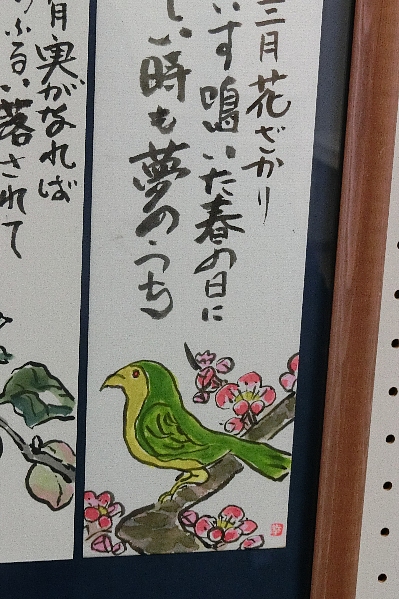 三月花ざかり
いす鳴いた春の日に
しい時も夢のうち
月実がなれば
ふるい落されて